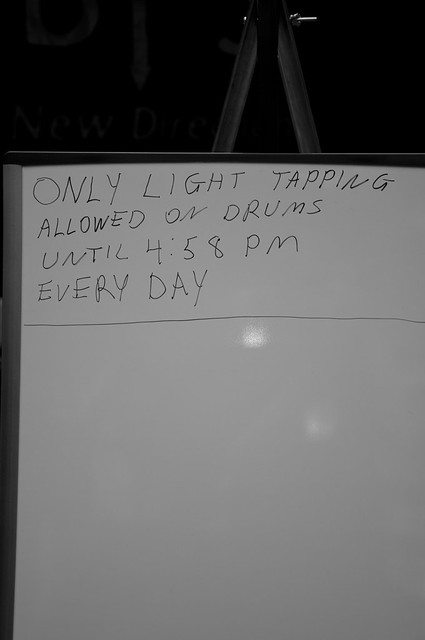 New
ONLY LIGHT TAPPING
ALLOWED ON DRUMS
UNTIL 4:58 PM
EVERY DAY